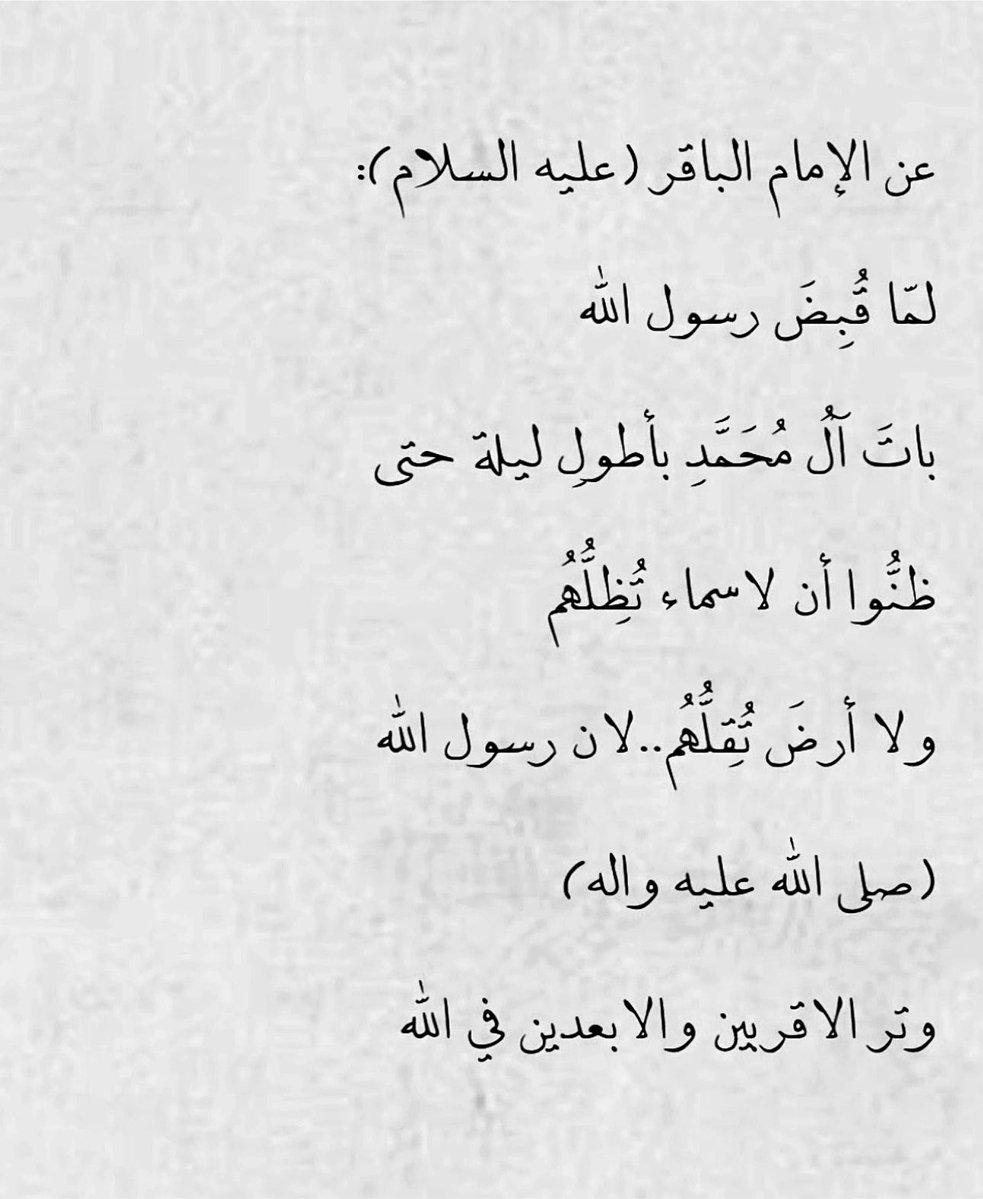 عن الإمام الباقر (عليه السلام):
لمّا قُبِضَ رسول الله
باتَ آلُ مُحَمَّدِ بأطولِ ليلة حتى
ظنُّوا أن لاسماء تُظِلُّهُم
ولا أرضَ تُقِلُّهُم..لان رسول الله
(صلى الله عليه واله)
وتر الاقربين والابعدين في الله